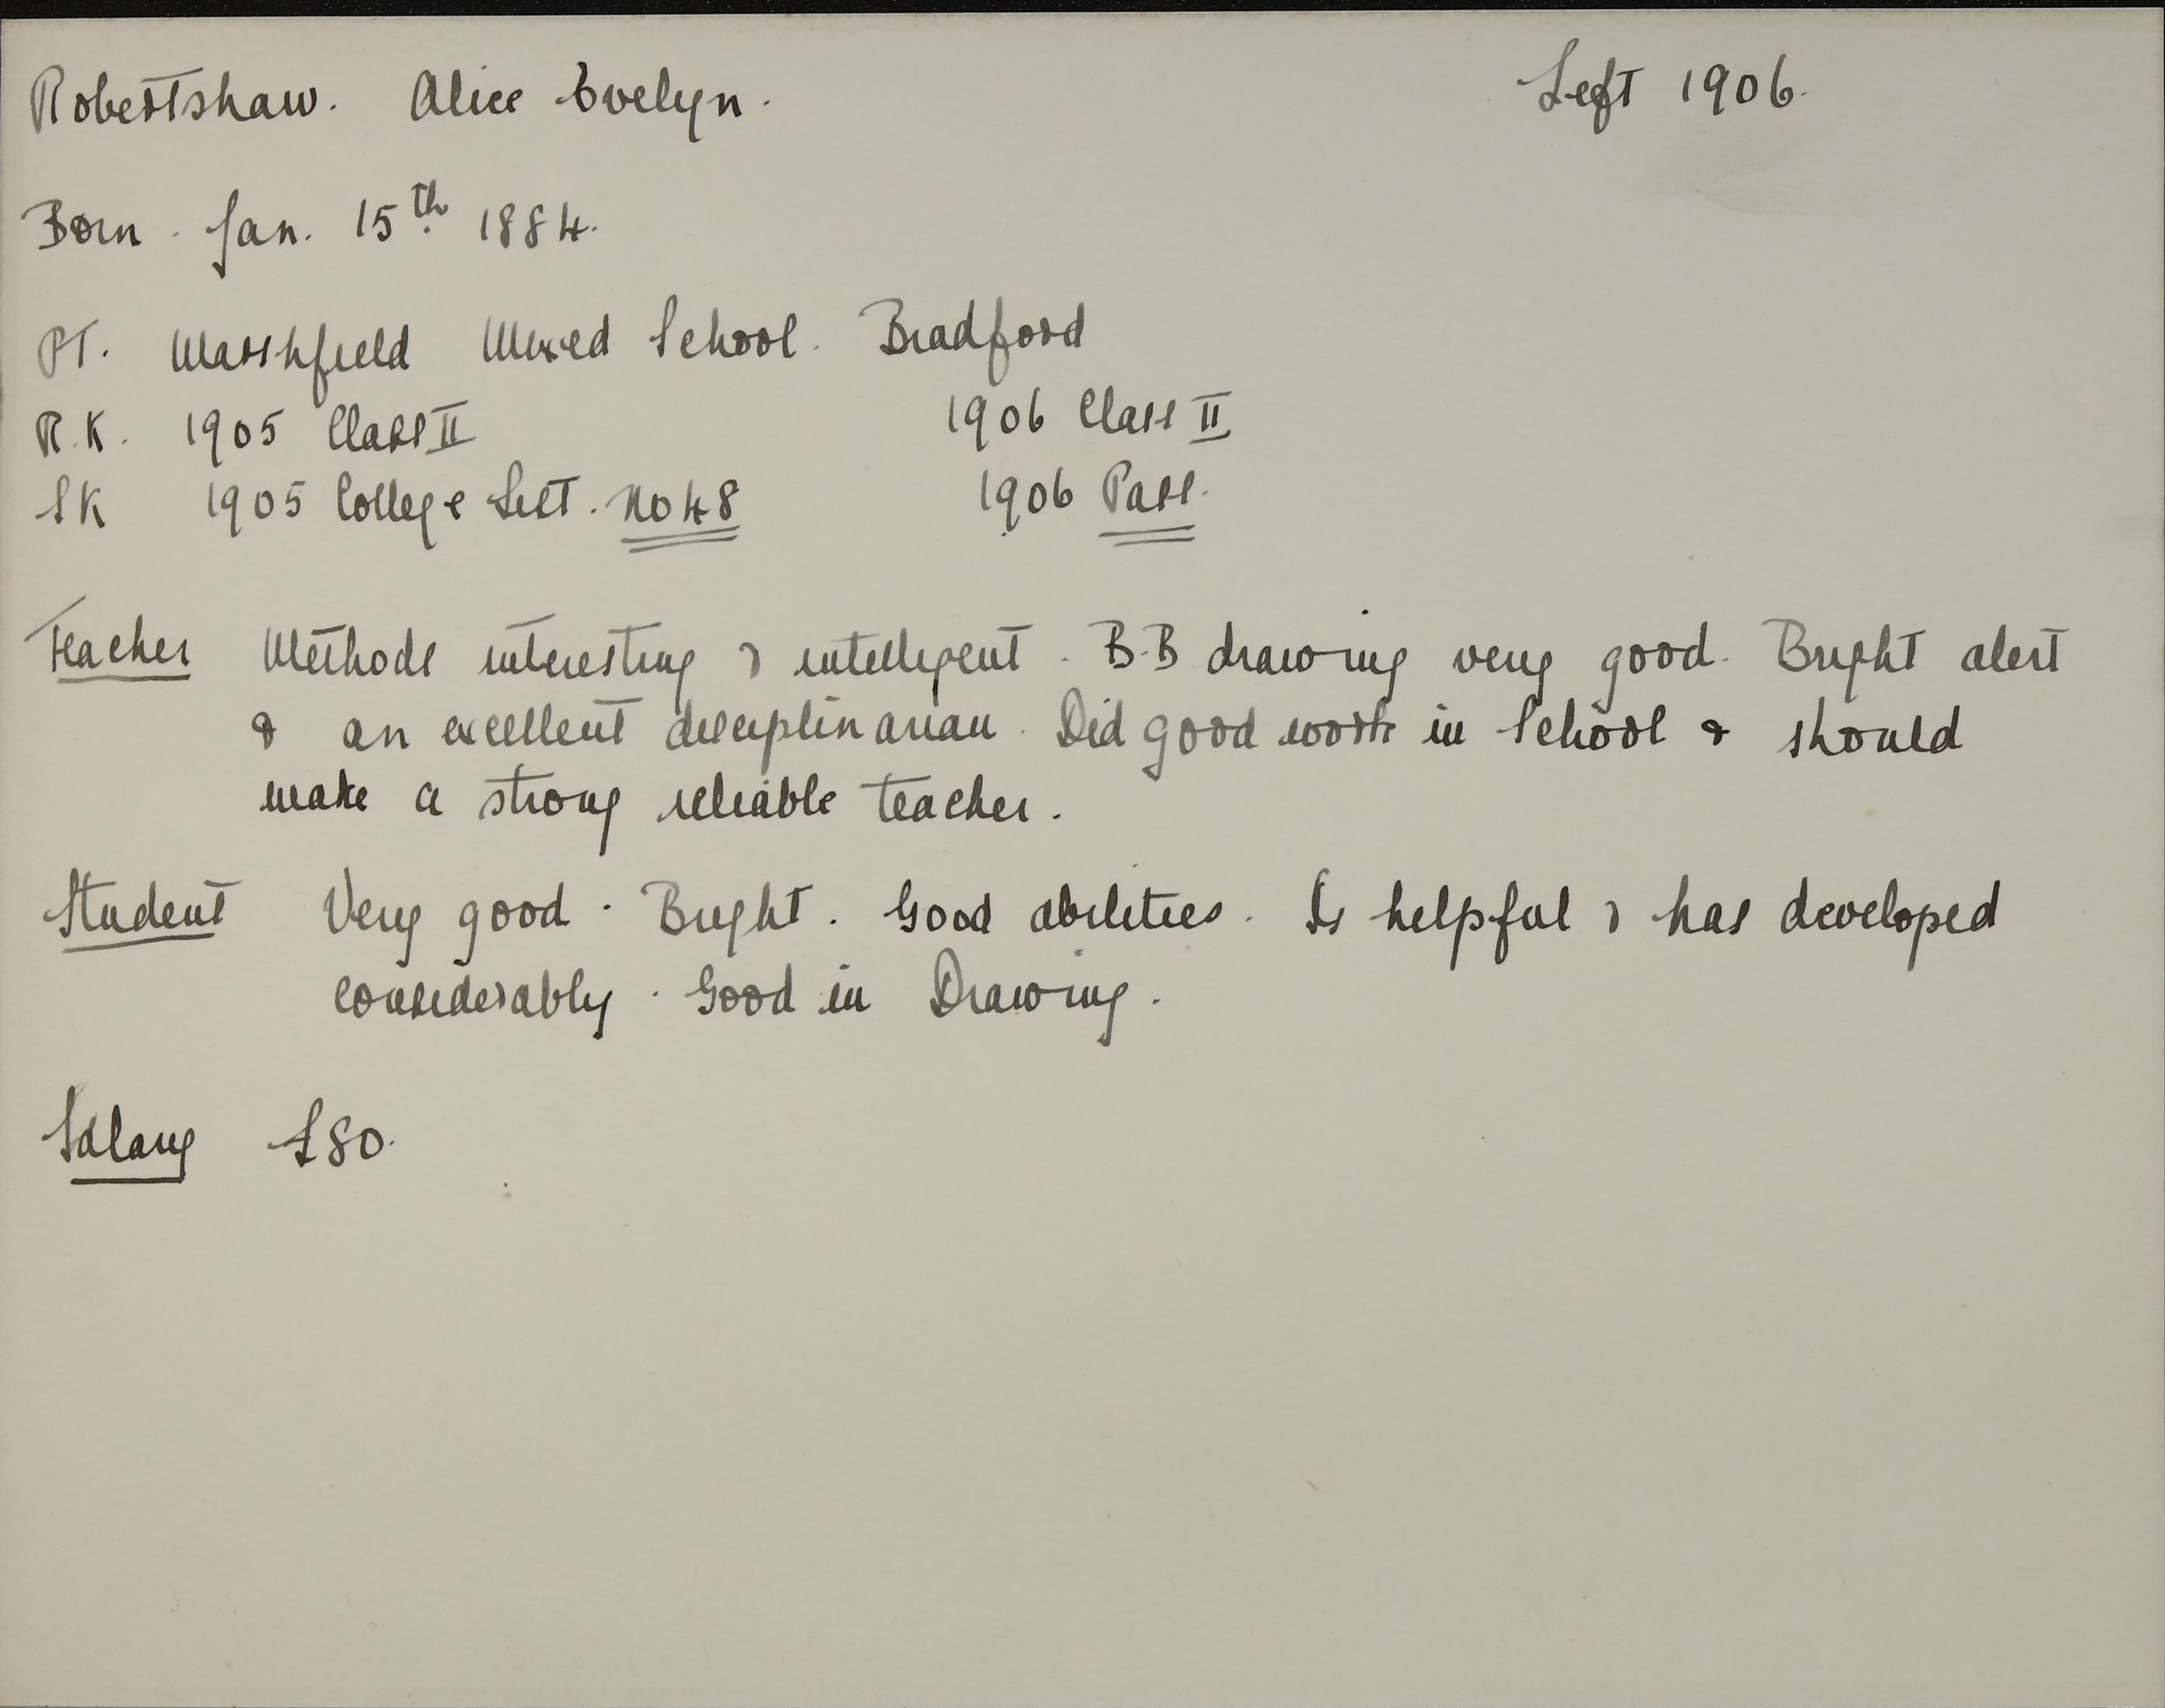 Robertshaw. Alice Evelyn. Left 1906.
Born. Jan. 15th 1884.
PT. Marshfield Mixed School. Bradford
R.K. 1905 Class II 1906 Class II
SK 1905 College List. No 48 1906 Pass.
Teacher Methods interesting & intelligent. B.B drawing very good. Bright alert
& an excellent disciplinarian. Did good work in School & should
make a strong reliable teacher.
Student Very good. Bright. Good abilities. Is helpful & has developed
considerably. Good in Drawing.
Salary £80.